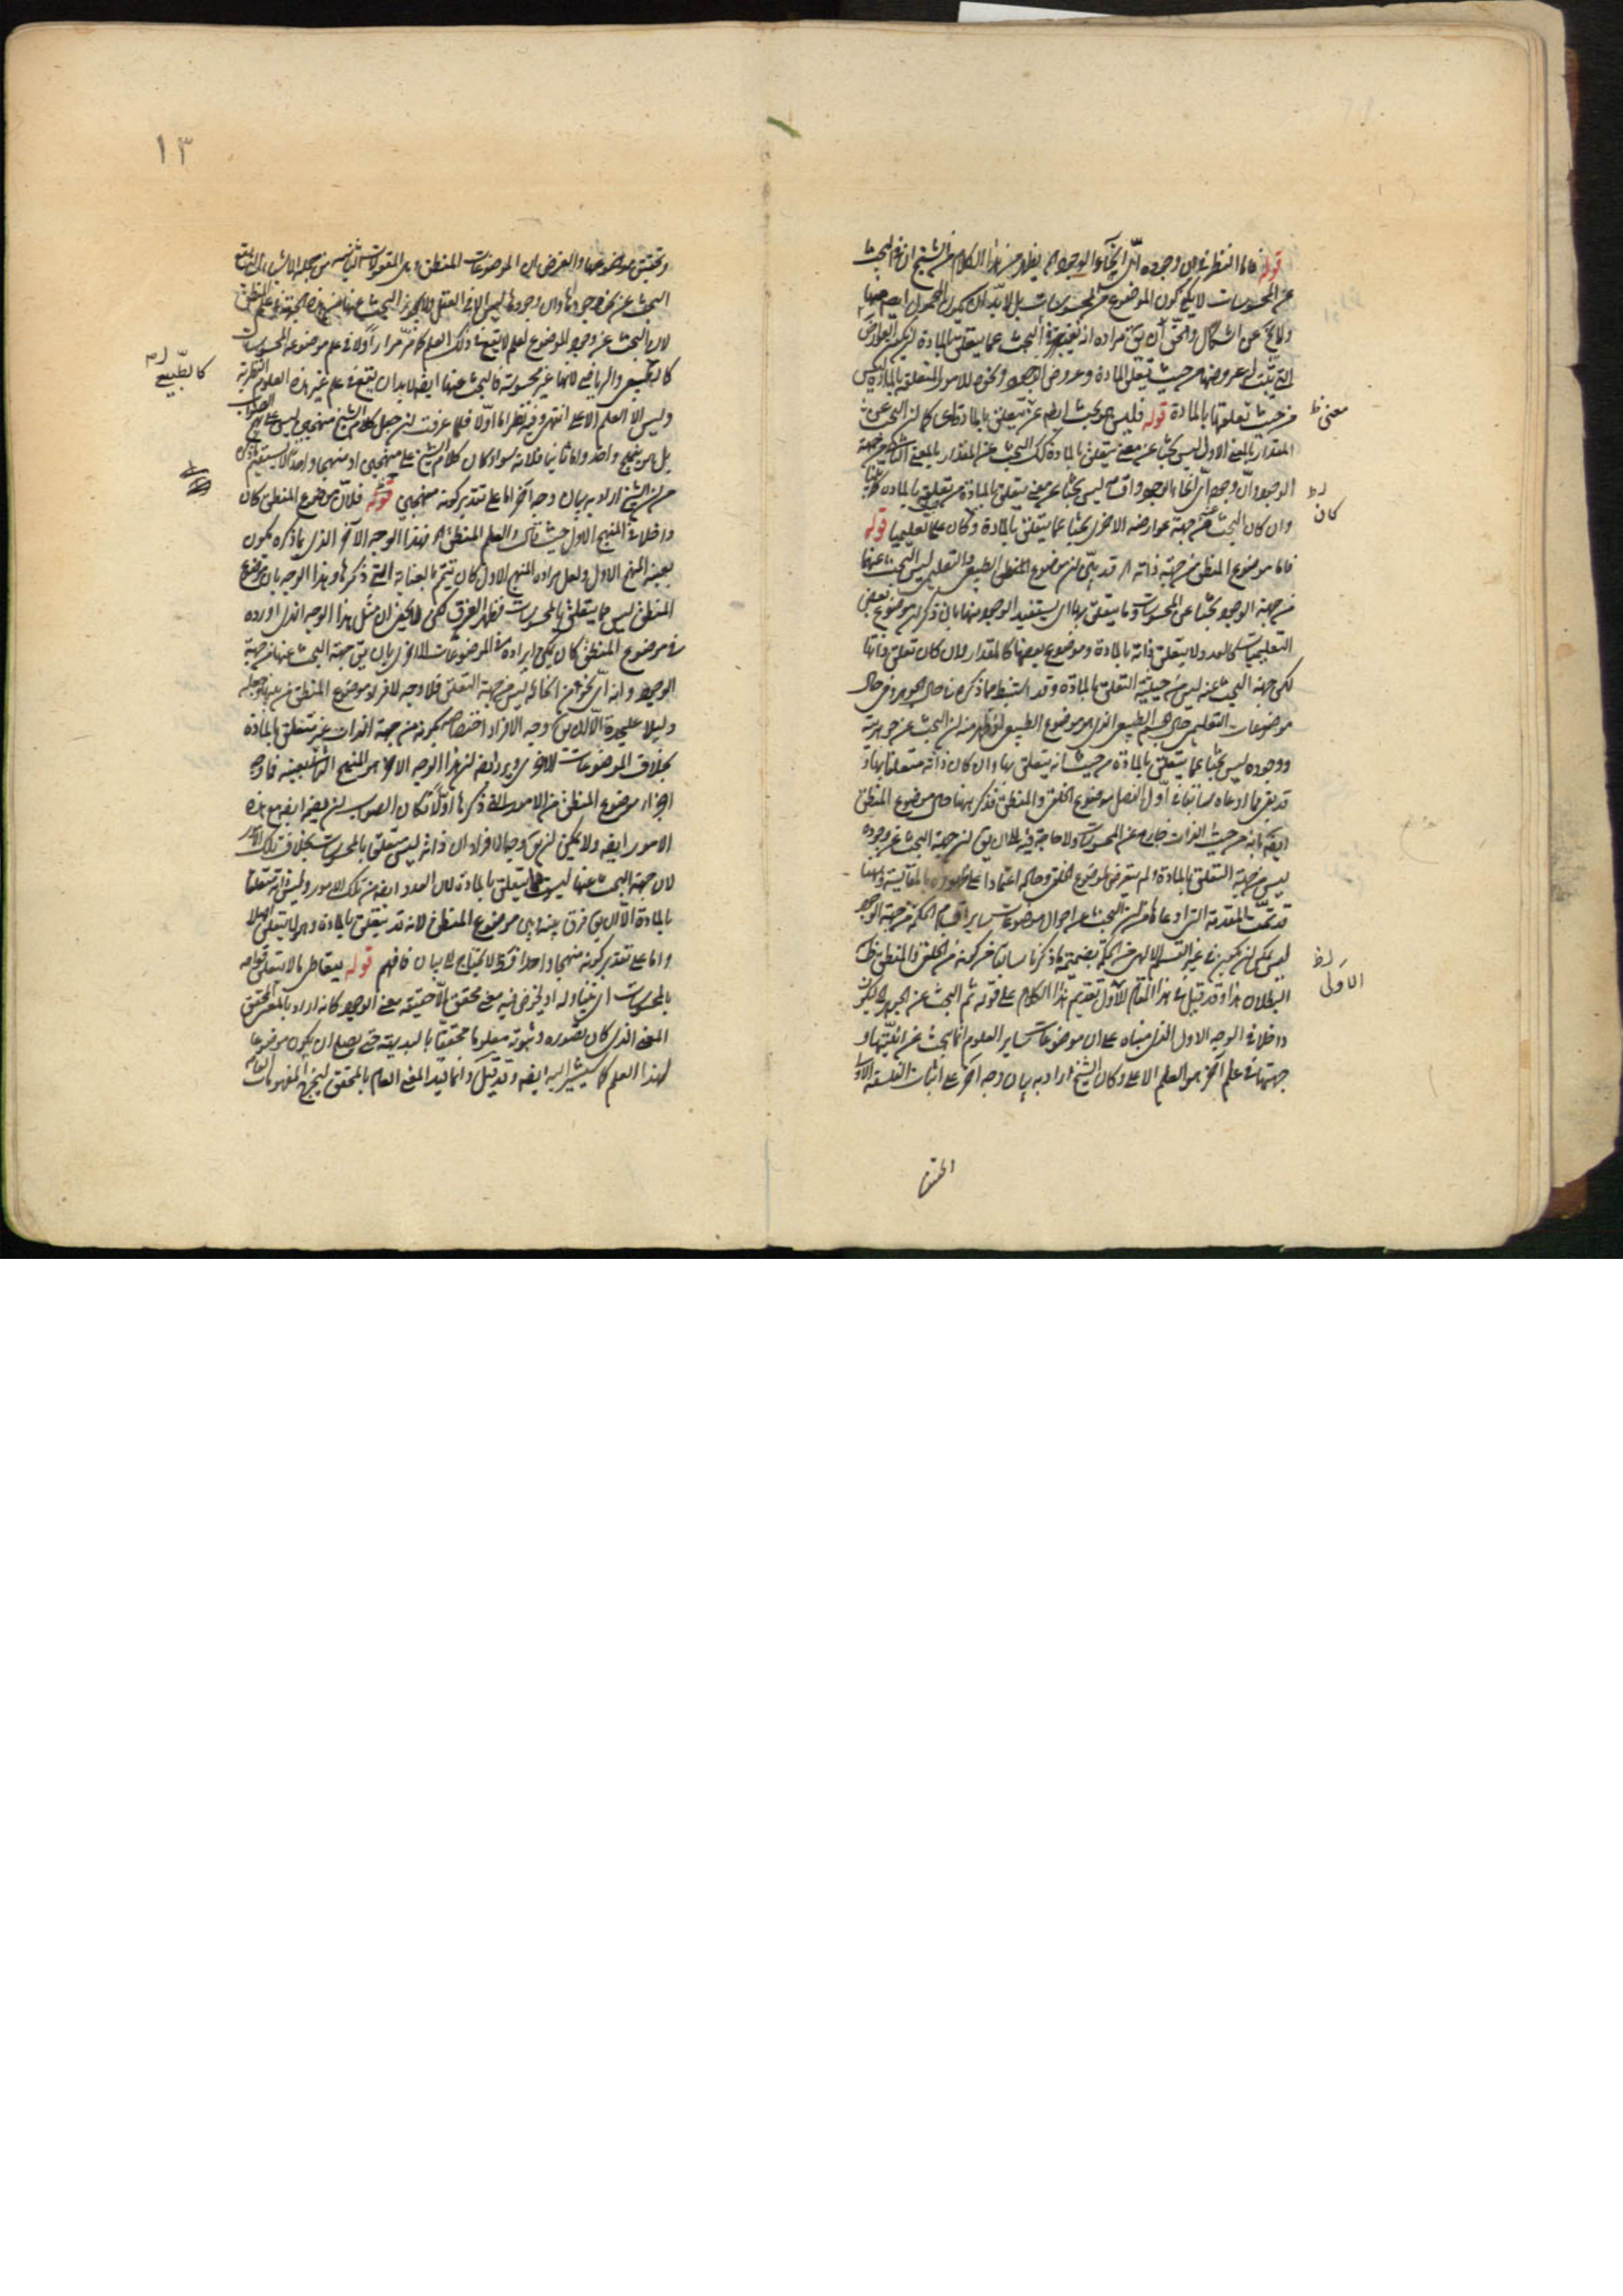 قوله فاما النظر في ان وجوده اي انحاء الوجود اه يظهر من هذا الكلام من الشيخ ان في البحث
عن المحسوسات لا يكفي كون الموضوع من المحسوسات بل لا بد ان يكون المحمول ايضا منها
ولا يخ عن اشكال والحق ان يق مراده انه يعتبر في البحث عما يتعلق بالمادة ان يكون العوارض
التي يثبت له عروضها من حيث تعلق المادة وعروض الوجود ونحوه للامور المتعلقة بالمادة ليس
من حيث تعلقها بالمادة قوله فليس هو بحث ايضا عن متعلق بالمادة اي كما ان البحث عن
المقدار بالمعنى الاول ليس بحثا عن معنى متعلق بالمادة كك البحث عن المقدار بالمعنى الثاني من جهة
الوجود وان وجوده اي انحاء الوجود واقسامه ليس بحثا عن معنى متعلق بالمادة
وان كان البحث عنه من جهة عوارضه الاخرى بحثا عما يتعلق بالمادة وكان علما تعليميا قوله
فاما موضوع المنطق من جهة ذاته اه قد بين ان موضوع المنطق الطبيعي والتعليمي ليس البحث عنهما
من جهة الوجود بحثا عن المحسوسات وما يتعلق بها اي يستفيد الوجود منها بان ذكر ان موضوع بعض
التعليميات كالعدد لا يتعلق ذاته بالمادة وموضوع بعضها كالمقدار وان كان تعلق ذاتها
لكن جهة البحث عنه ليس من حيثية التعلق بالمادة وقد استنبط مما ذكره من حال الجوهر ومن حال
موضوعات التعليمي حال الجسم الطبيعي الذي هو موضوع الطبيعي اذ ظهر منه ان البحث عن جوهريته
ووجوده ليس بحثا عما يتعلق بالمادة من حيث انه يتعلق بها وان كان ذاته متعلقا بها و
قد بقي مما ادعاه سابقا في اول الفصل موضوع الخلقي والمنطقي فذكر ههنا حال موضوع المنطق
ايضا بانه من حيث الذات خارج عن المحسوسات ولا حاجة فيه الى ان يق ان جهة البحث عن وجوده
ليس من جهة التعلق بالمادة ولم يتعرض لموضوع الخلقي وحاله اعتمادا على ظهوره بالمقايسة وههنا
قد تمت المقدمة التي ادعاها من ان البحث عن احوال موضوعات ساير اقسام الحكمة من جهة الوجود
ليس يمكن ان يكون في غير القسم الالهي من الحكمة بضميمة ما ذكرنا سابقا من كونه في الخلقي والمنطقي ظاهر
البطلان هذا وقد قيل في هذا المقام الاول تقديم هذا الكلام على قوله ثم البحث عن الجوهر ليكون
داخلا في الوجه الاول الذي مبناه على ان موضوعات ساير العلوم انما يبحث عن انيتها و
جهتها في علم آخر هو العلم الاعلى وكان الشيخ اراد به بيان وجه آخر على اثبات الفلسفة الاولى
معنى ظ
كان ظ
الاولى ظ
١٣
وتحقيق موضوعها والغرض ان الموضوعات المنطق وهي المعقولات الثانية من جملة الاشياء التي يقع
البحث عن نحو وجودها وان وجودها ليس الا في العقل ولا يجوز البحث عنها من هذه الجهة في علم المنطق
لان البحث عن وجود الموضوع لعلم لا يقع في ذلك العلم كما مر مرارا ولا في علم موضوعه المحسوسات
كالطبيعي والرياضي لانها غير محسوسة فالبحث عنها ايضا لا بد ان يقع في علم غير هذه العلوم النظرية
وليس الا العلم الاعلى انتهى وفيه نظر اما اولا فلما عرفت ان جعل كلام الشيخ منهجين ليس على الصواب
بل هو منهج واحد واما ثانيا فلانه سواء كان كلام الشيخ على منهجين او منهجا واحدا لا يستقيم ما ذكره
من ان الشيخ اراد به بيان وجه آخر اما على تقدير كونه منهجين قوله فلان موضوع المنطق كان
داخلا في المنهج الاول حيث قال والعلم المنطقي اه فهذا الوجه الآخر الذي ما ذكره يكون
بعينه المنهج الاول ولعل مراده المنهج الاول كان يتم بالعناية التي ذكرها وهذا الوجه بان موضوع
المنطق ليس مما يتعلق بالمحسوسات فظهر الفرق لكن لا يخفى ان مثل هذا الوجه الذي اورده
في موضوع المنطق كان يمكن ايراده في الموضوعات الاخرى بان يق جهة البحث عنها من جهة
الوجود وانه اي نحو من انحائه ليس من جهة التعلق فلا وجه لافراد موضوع المنطق من بينها وجعله
دليلا عليحدة الا ان يق وجه الافراد اختصاصه بكونه من جهة الذات غير متعلق بالمادة
بخلاف الموضوعات الاخرى ويرد ايضا ان هذا الوجه الآخر هو المنهج الثاني بعينه فما وجه
افراد موضوع المنطق من الامور التي ذكرها اولا فكان الصواب ان يضمه ايضا مع هذه
الامور ايضا ولا يمكن ان يق وجه الافراد ان ذاته ليس متعلق بالمحسوسات بخلاف تلك الامور
لان جهة البحث عنها ليست مما يتعلق بالمادة لان العدد ايضا من تلك الامور وليس ذاته متعلقا
بالمادة الا ان يق فرق بينه وبين موضوع المنطق لانه قد يتعلق بالمادة وهو لا يتعلق اصلا
واما على تقدير كونه منهجا واحدا فقط لا يحتاج الى بيان فافهم قوله يتعاطى ما لا يتعلق قوامه
بالمحسوسات اي يتناوله او يخوض فيه معنى محقق الا حقيقة معنى الوجود كانه اراد بالمعنى المحقق
المعنى الذي كان تصوره وثبوته معلوما محققا بالبديهة حتى يصلح ان يكون موضوعا
لهذا العلم كما سيشير اليه ايضا وقد قيل وانما قيد المعنى العام بالمحقق ليخرج المفهومات العامة
كالطبيعي
المحقق